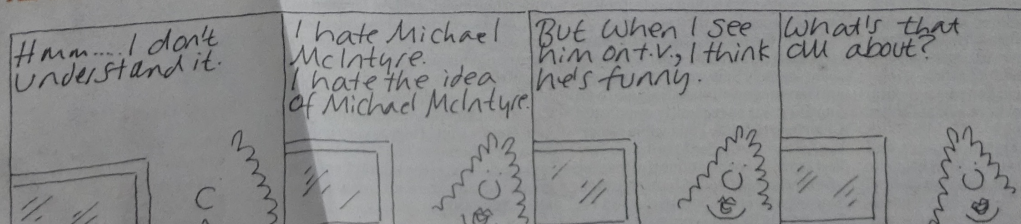 Hmm.... I don't
understand it.
I hate Michael
McIntyre.
I hate the idea
of Michael McIntyre.
But when I see
him on t.v., I think
he's funny.
What's that
all about?